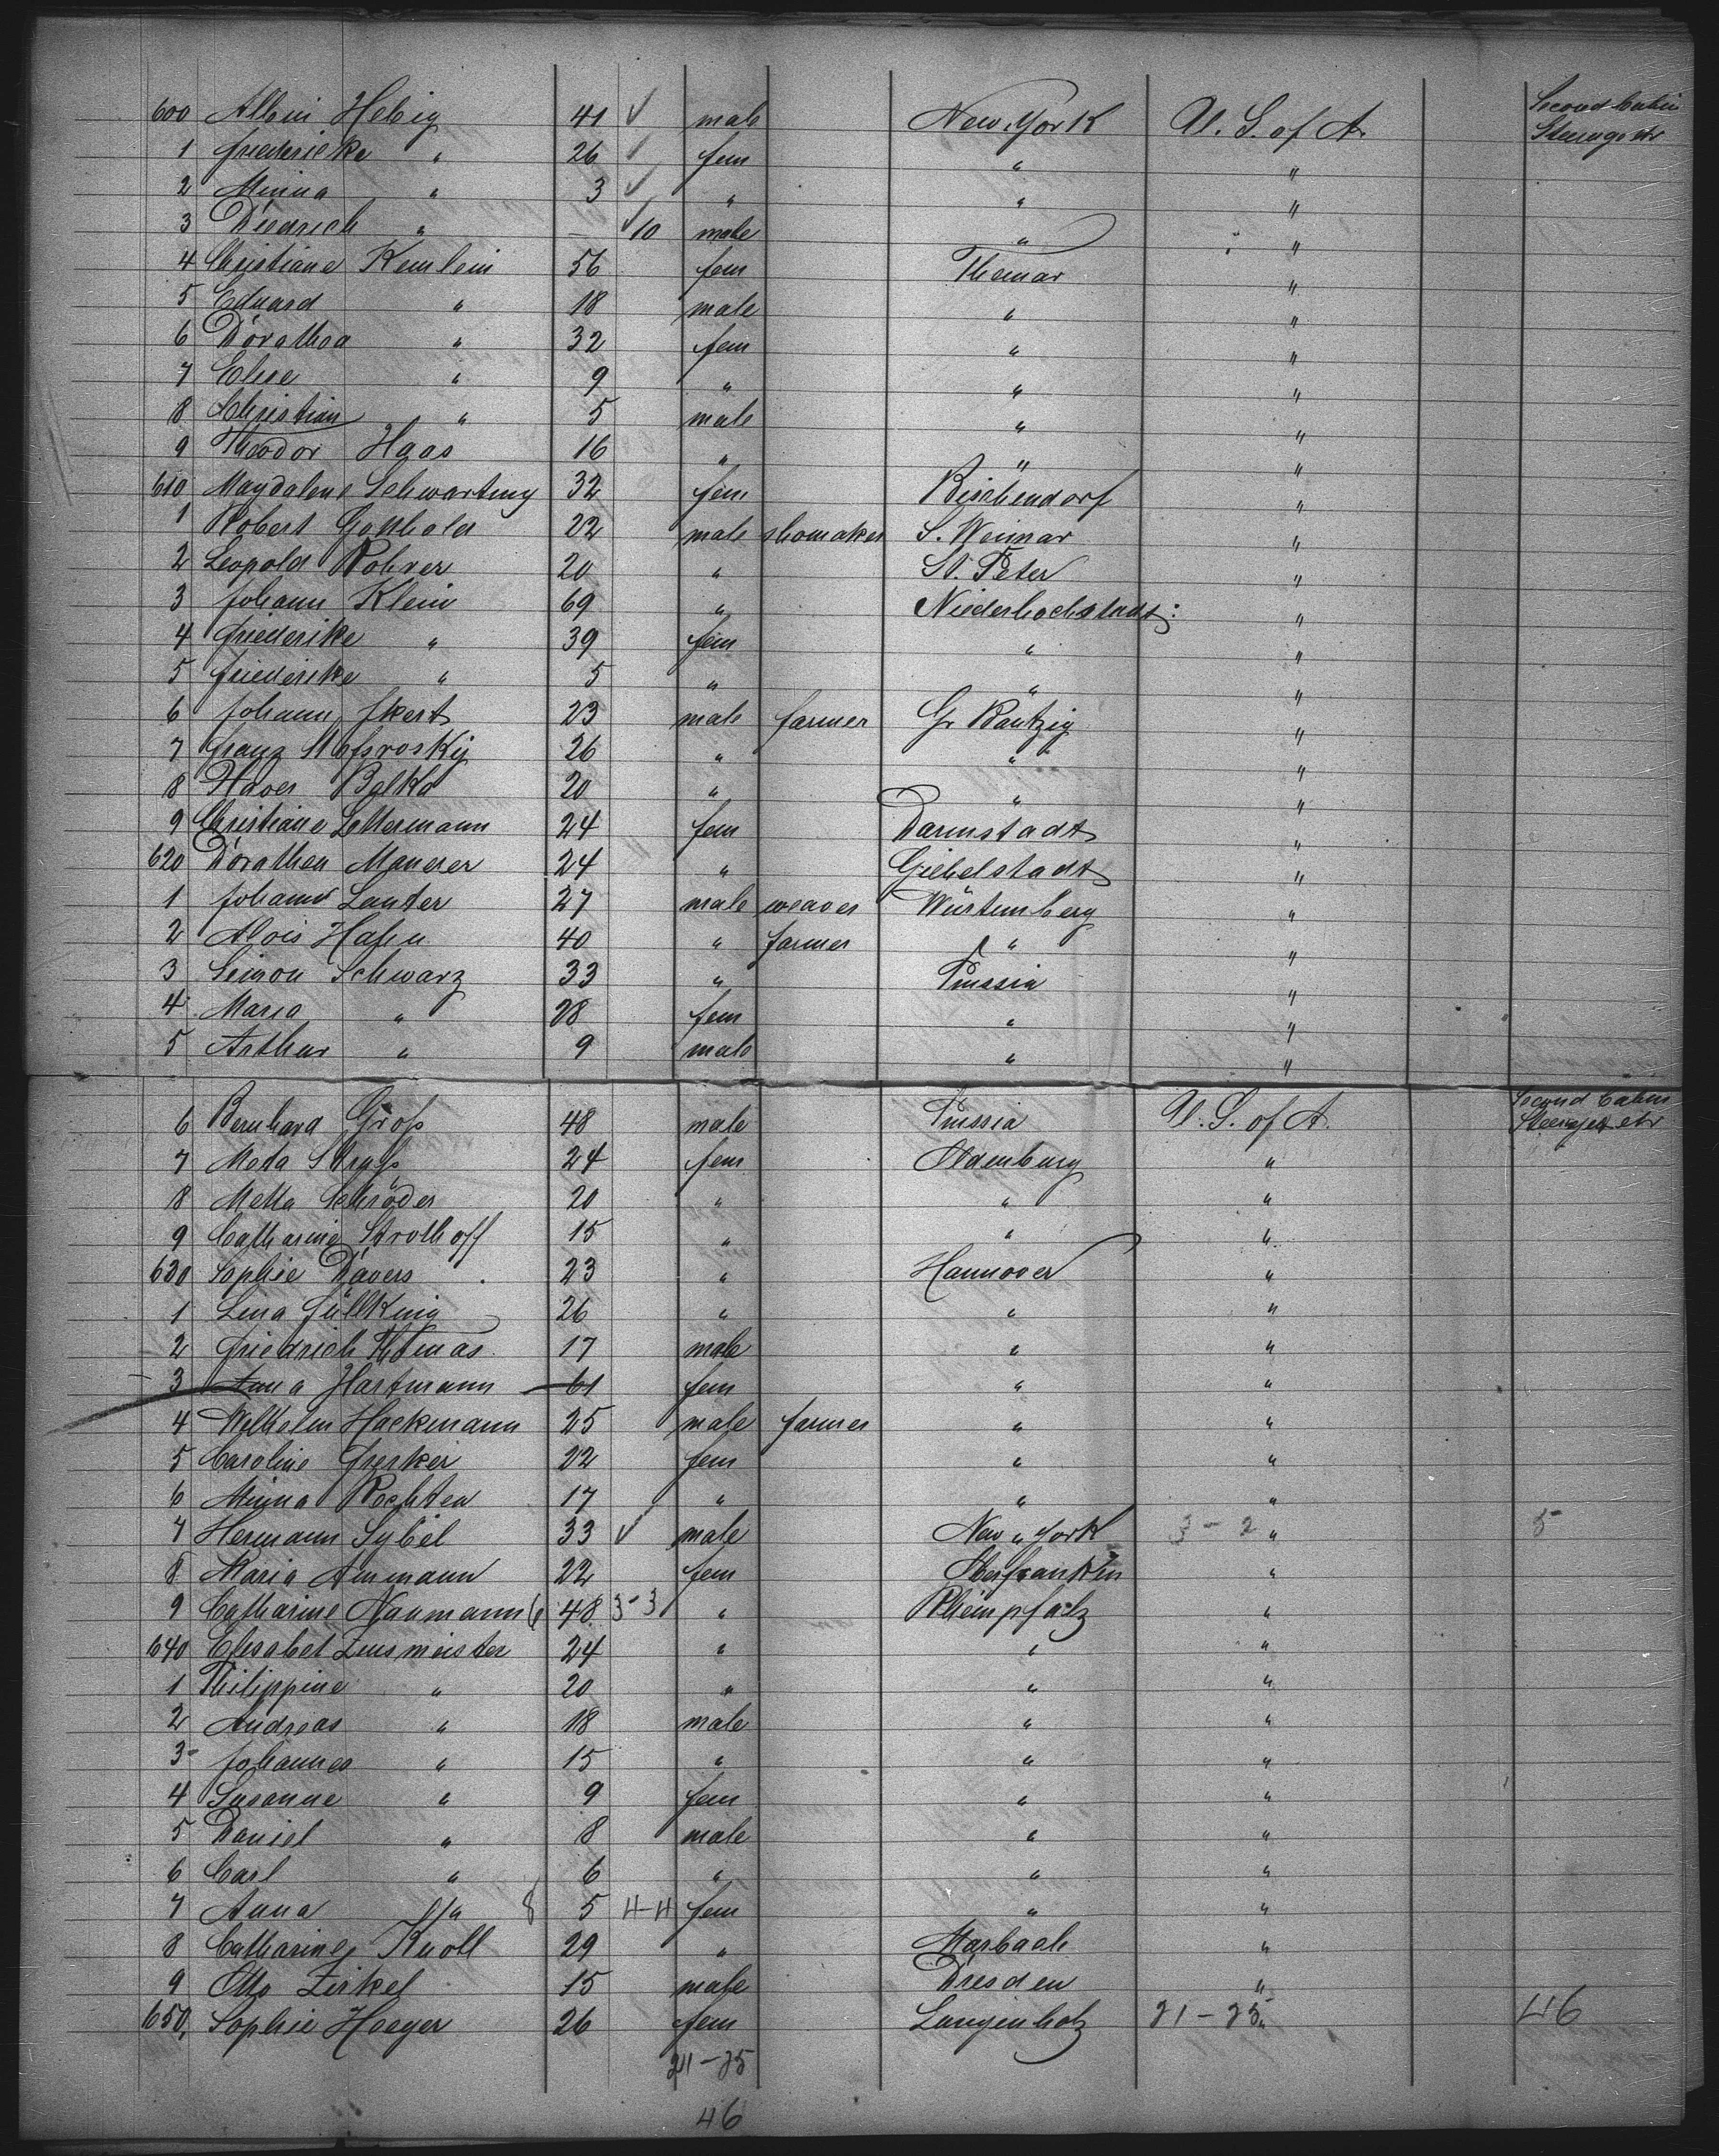 600 Albin Helbig 41 ✓ male New York U. S. of A. Second Cabin
1 Friederike " 26 ✓ fem " "
2 Minna " 3 ✓ " " "
3 Diedrich " – ✓ 10 male " "
4 Christiane Kemlein 56 fem Themar "
5 Eduard " 18 male " "
6 Dorathea " 32 fem " "
7 Elise " 9 " " "
8 Christian " 5 male " "
9 Theodor Haas 16 " " "
610 Magdalene Schwarting 32 fem Bischendorf "
1 Robert Gotthold 22 male shomaker S. Weimar "
2 Leopold Rohrer 20 " St. Peter "
3 Johann Klein 69 " Niederhochstadt: "
4 Friederike " 39 fem " "
5 Friederike " 5 " " "
6 Johann Ikert 23 male farmer Gr Bautzig "
7 Franz 26 " " "
8 Balka 20 " " "
9 Christiane Lettermann 24 fem Darmstadt "
620 Dorathea Maurer 24 " Giebelstadt "
1 Johann Lauter 27 male weaver Würtemberg "
2 Alois Hafen 40 " farmer " "
3 Seimon Schwarz 33 " Prussia "
4 Maria " 28 fem " "
5 Arthur " 9 male " "
6 Bernhard Groß 48 male Prussia U. S. of A. Second Cabin
7 Meta 24 fem Oldenburg "
8 Metta Schröder 20 " " "
9 Catharine Strothoff 15 " " "
630 Sophie Davers 23 " Hannover "
1 Lina Füllking 26 " " "
2 Friedrich Thomas 17 male " "
3 Anna Hartmann 61 fem " "
4 Wilhelm Hackmann 25 male farmer " "
5 Caroline Gerker 22 fem " "
6 Minna Rechten 17 " " "
7 Hermann Sybel 33 ✓ male New York 3 – 2 " 5
8 Maria Ammann 22 fem Oberfranken "
9 Catharine Naumann 48 3–3 " Rheinpfalz "
640 Elisabet Zinsmeister 24 " " "
1 Philippine " 20 " " "
2 Andreas " 18 male " "
3 Johannes " 15 " " "
4 Susanne " 9 fem " "
5 Daniel " 8 male " "
6 Carl " 6 " " "
7 Anna " 8 5 4–4 fem " "
8 Catharine Knoll 29 " Marbach "
9 Otto Zirkel 15 male Dresden "
650, Sophie Hoeger 26 fem Langenholz 21 – 25 " 46
21–25
46